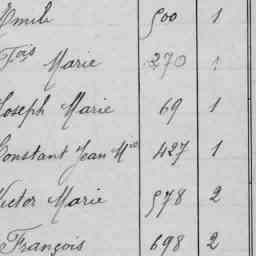 Emile 500 1
Fois Marie 270 1
Joseph Marie 69 1
Constant Jean Mie 427 1
Victor Marie 578 2
François 698 2